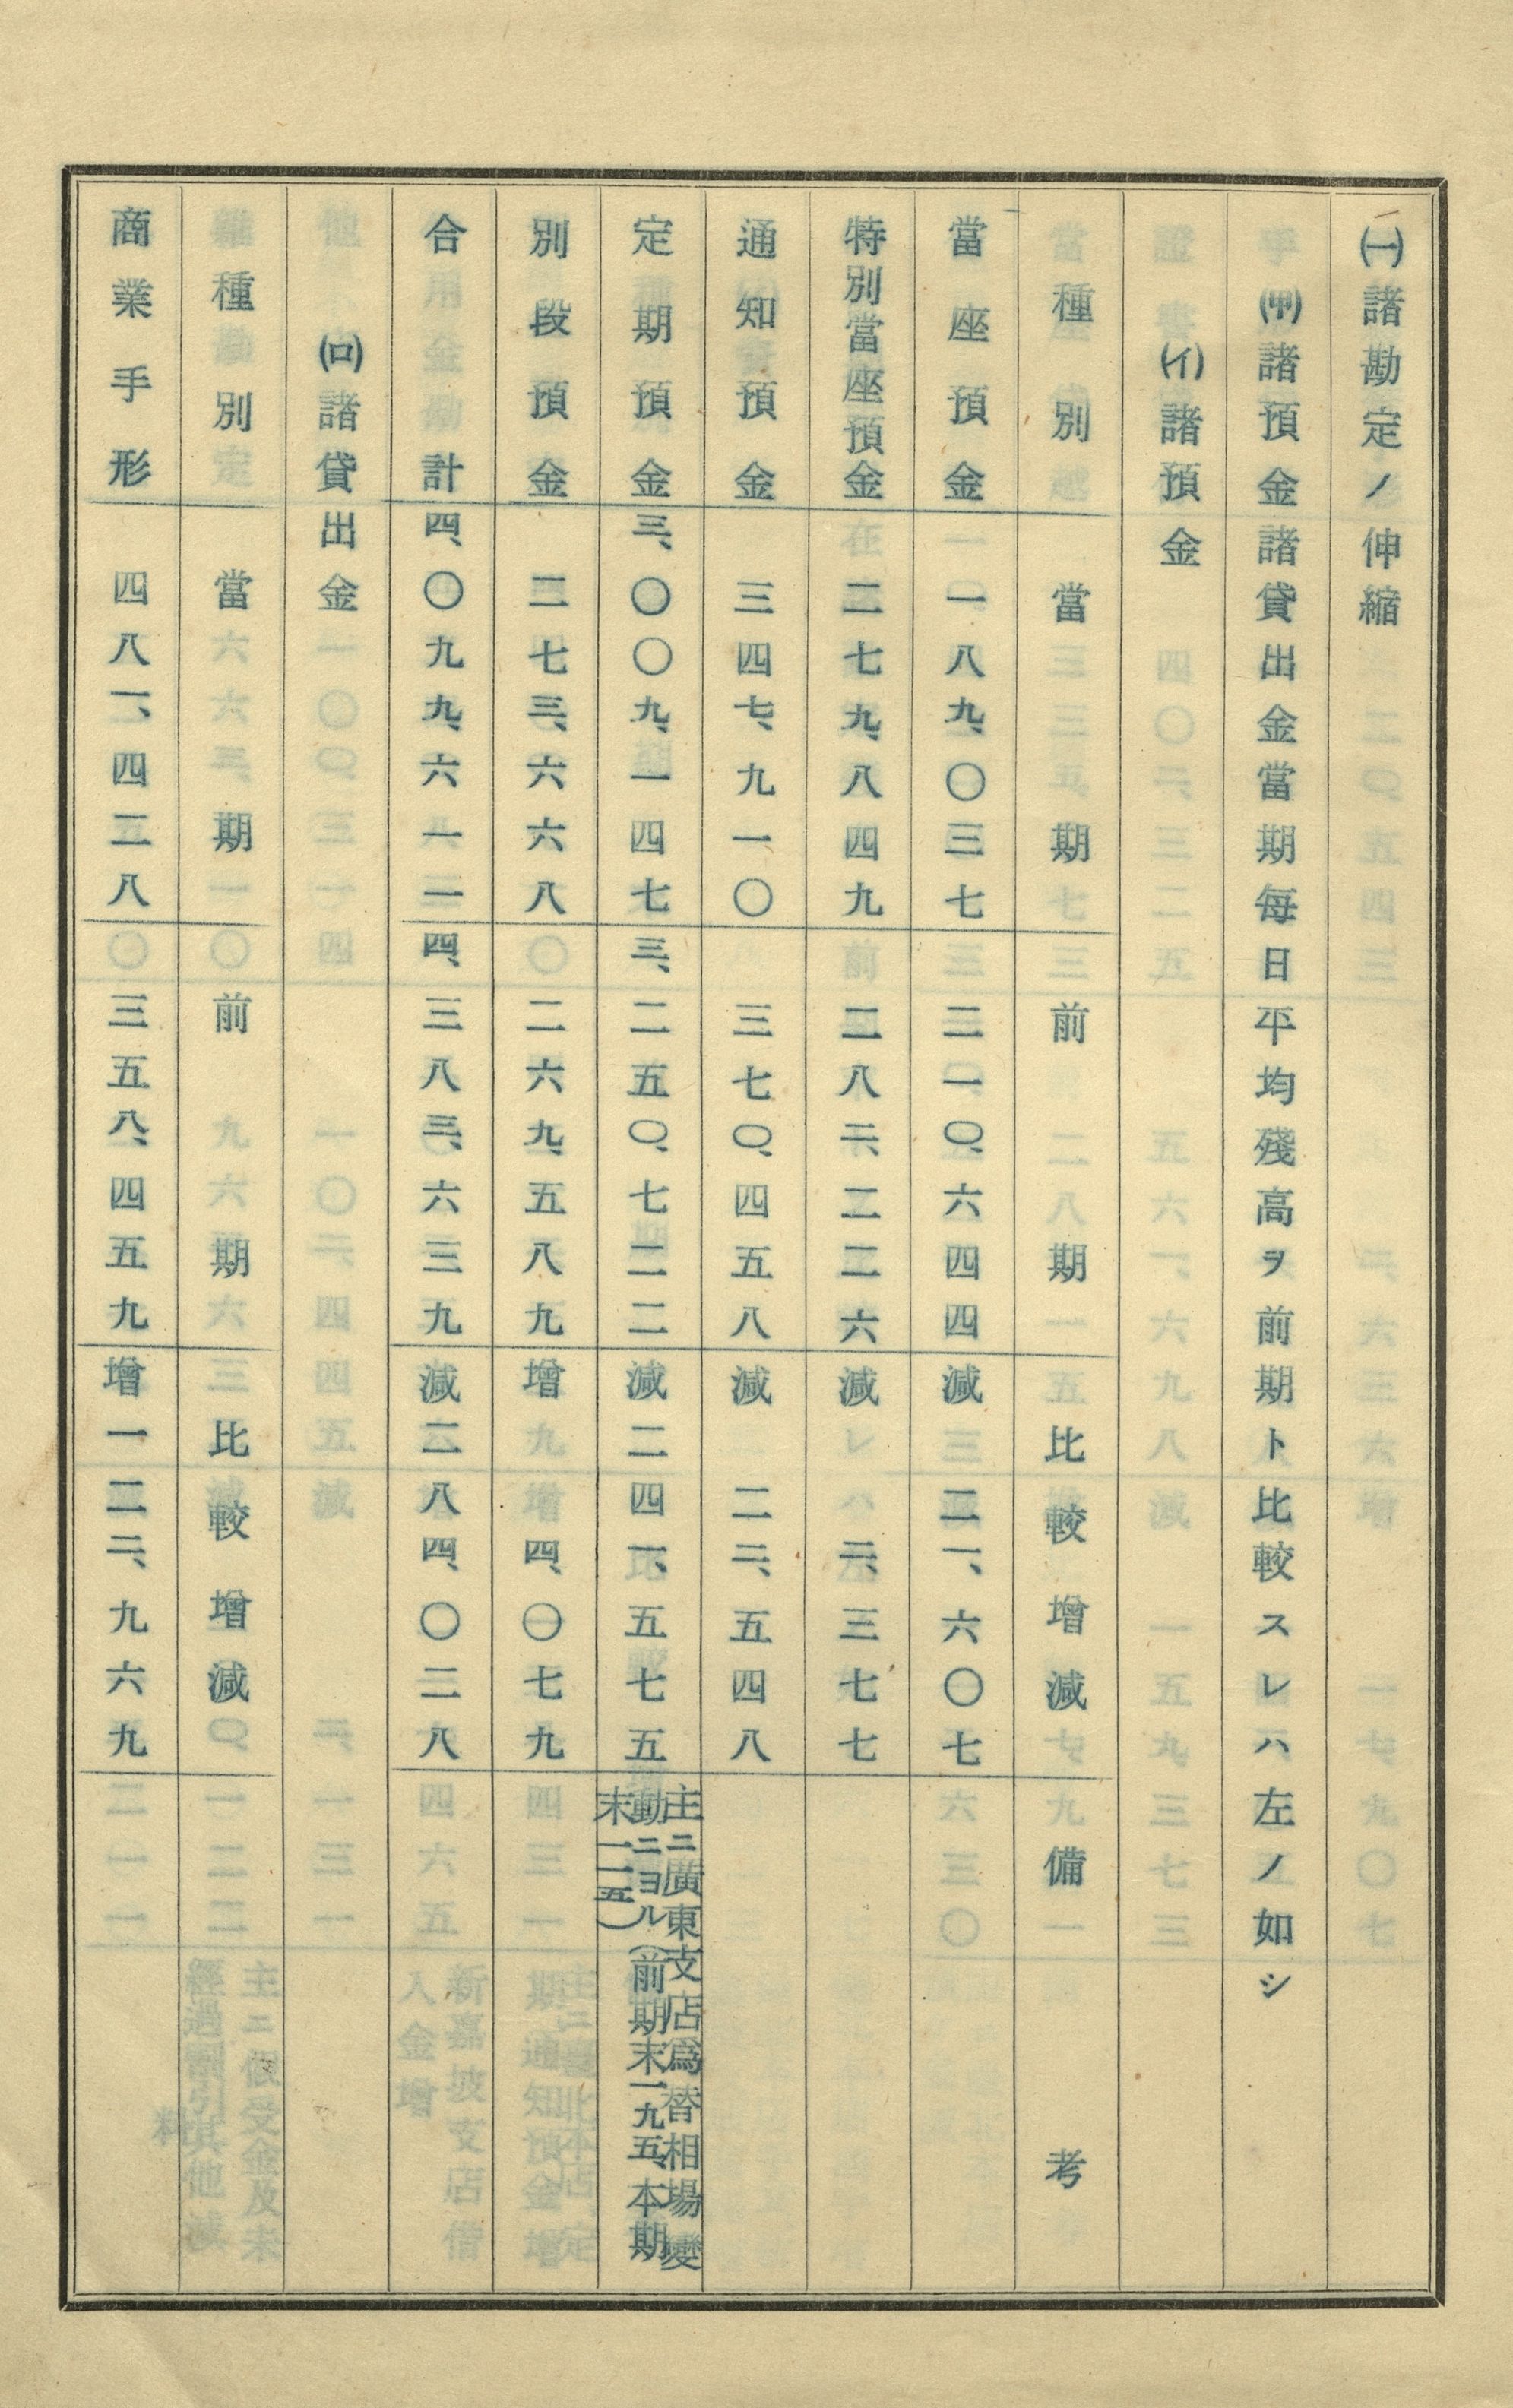 ㈠諸勘定ノ伸縮
㈥諸預金諸貸出金當期每日平均殘高ヲ前期ト比較スレハ左ノ如シ
(イ)諸預金
種別 當期 前期 比較增減 備考
當座預金 一八九、〇三七 二一〇、六四四 減 二一、六〇七
特別當座預金 二七九、八四九 二八二、二二六 減 二、三七七
通知預金 三四七、九一〇 三七〇、四五八 減 二二、五四八
定期預金 三、〇〇九、一四七 三、二五〇、七二二 減二四一、五七五 主ニ廣東支店爲替相場變
動ニヨル(前期末一九五、本期
末一一五)
別段預金 二七三、六六八 二六九、五八九 增 四、〇七九
合計 四、〇九九、六一一 四、三八三、六三九 減二八四、〇二八
(ロ)諸貸出金
種別 當期 前期 比較增減
商業手形 四八一、四二八 三五八、四五九 增一二二、九六九